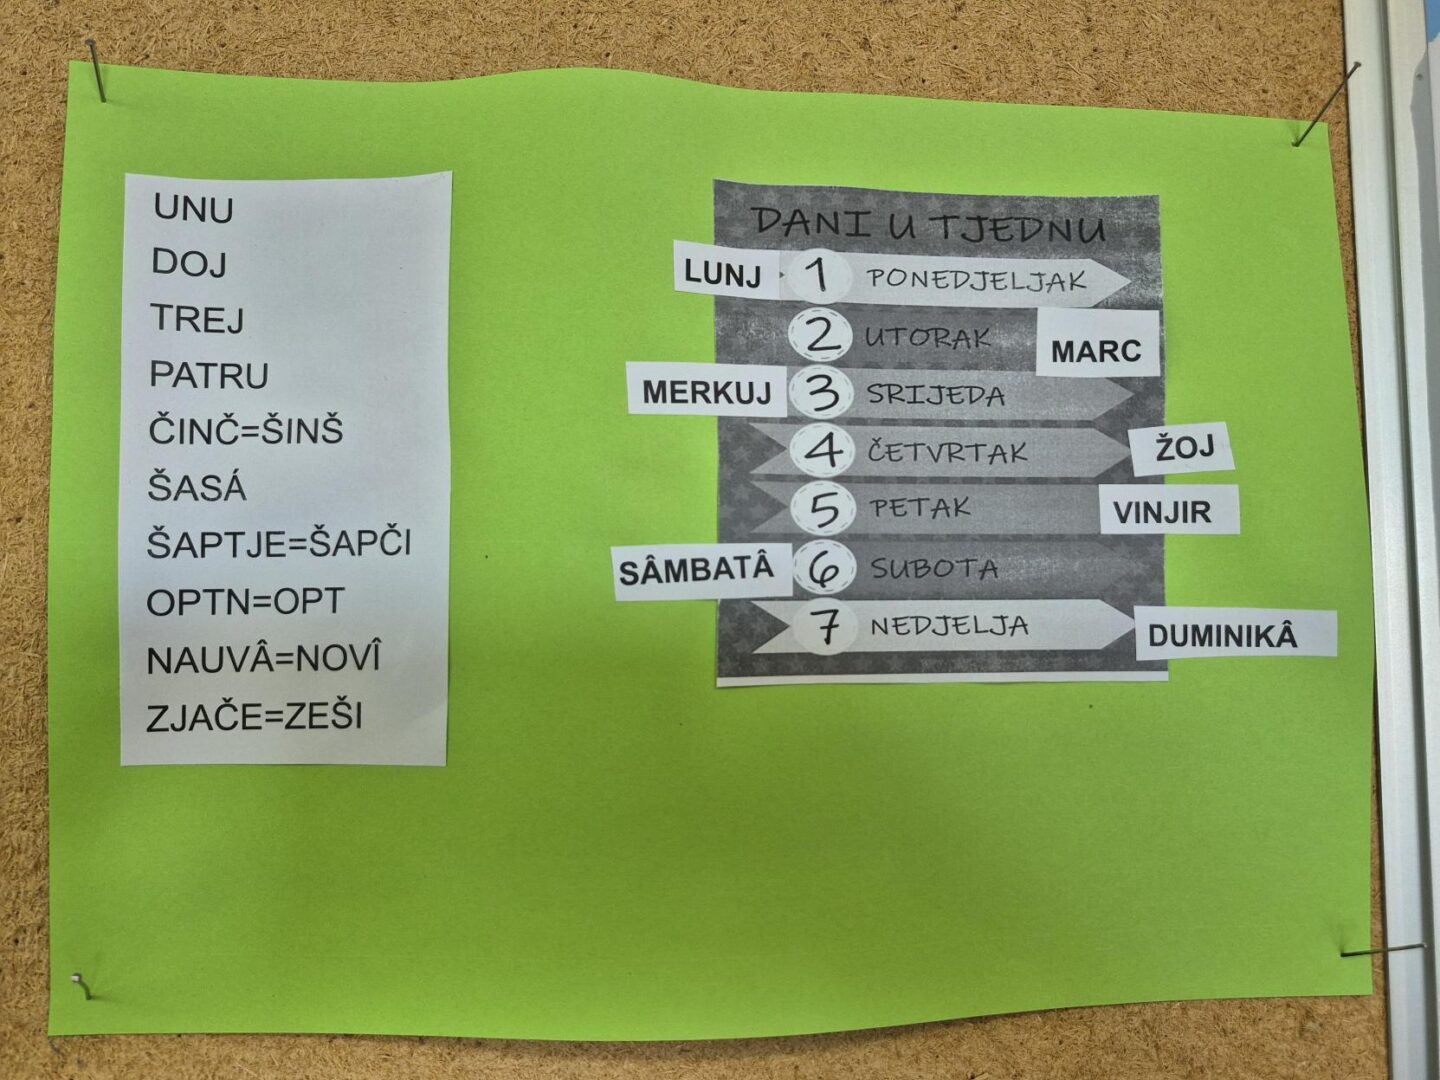 UNU
DOJ
TREJ
PATRU
ČINČ=ŠINŠ
ŠASÁ
ŠAPTJE=ŠAPČI
OPTN=OPT
NAUVÂ=NOVÎ
ZJAČE=ZEŠI
DANI U TJEDNU
LUNJ 1 PONEDJELJAK
2 UTORAK MARC
MERKUJ 3 SRIJEDA
4 ČETVRTAK ŽOJ
5 PETAK VINJIR
SÂMBATÂ 6 SUBOTA
7 NEDJELJA DUMINIKÂ